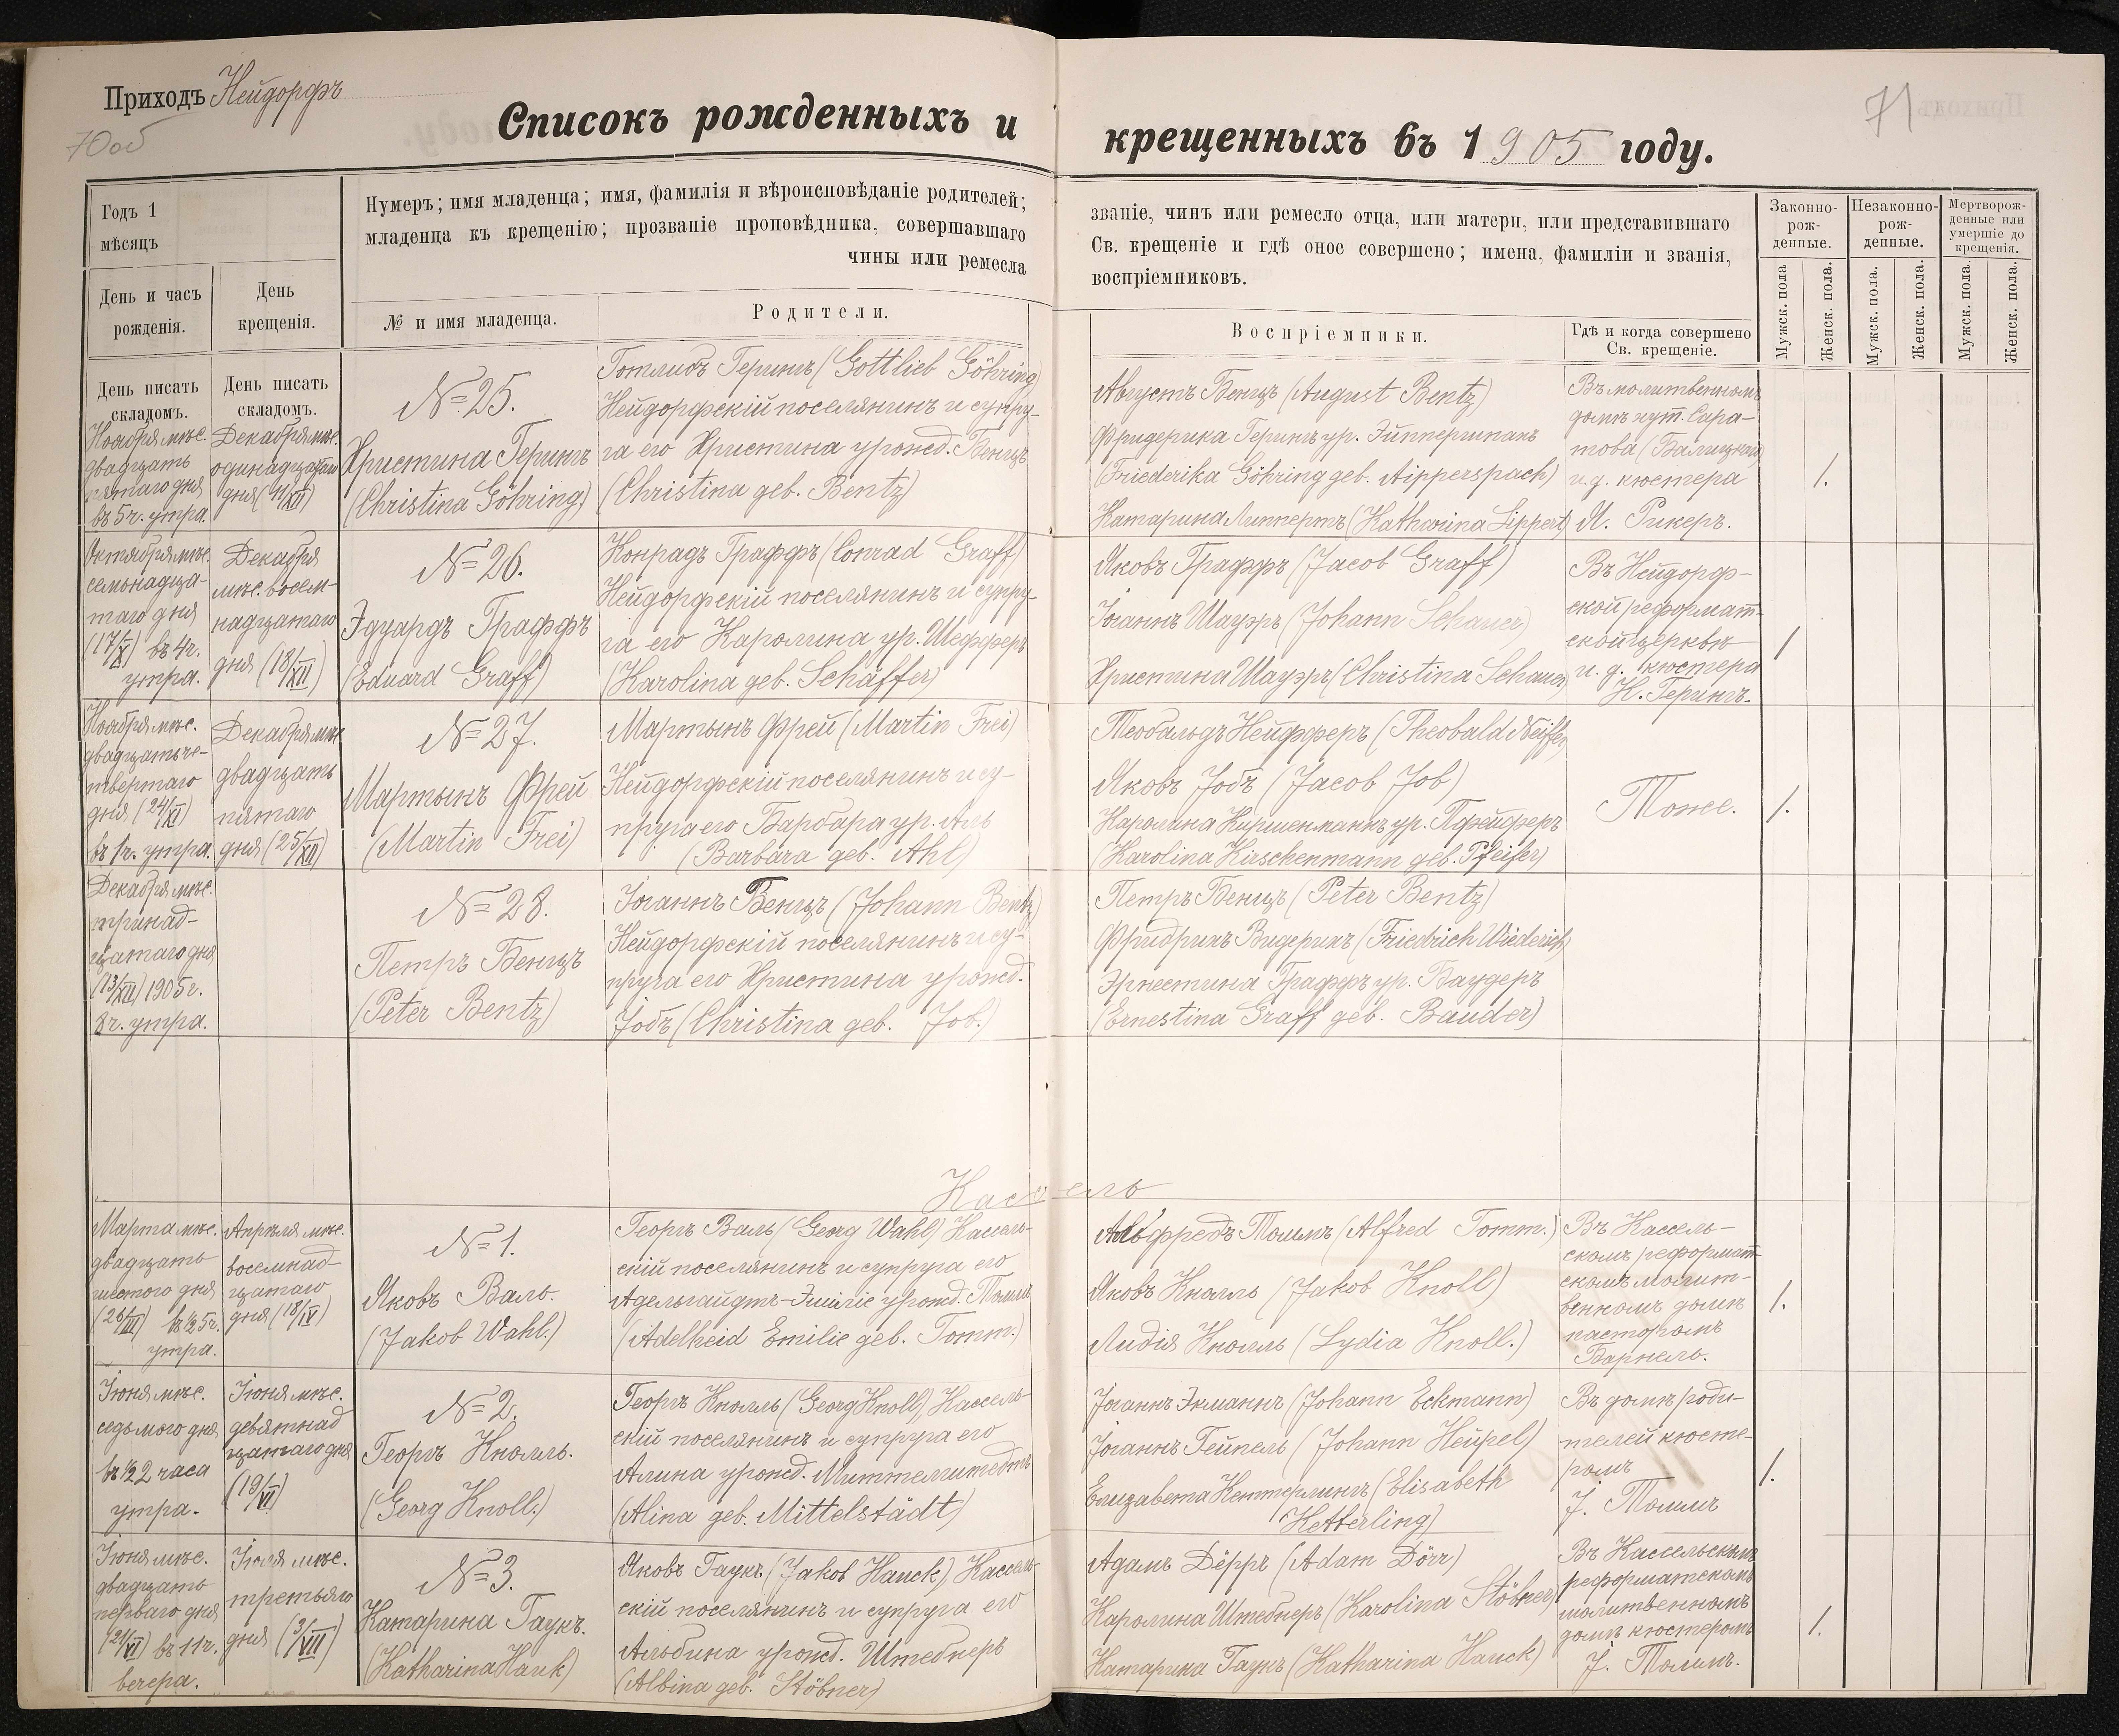 Приходъ Нейдорфъ
70об
71
Списокъ рожденныхъ и крещенныхъ въ 1905 году.
Годъ 1
мѣсяцъ
День и часъ
рожденія.
День
крещенія.
Нумеръ; имя младенца; имя, фамилія и вѣроисповѣданіе родителей;
младенца къ крещенію; прозваніе проповѣдника, совершавшаго
чины или ремесла
№ и имя младенца.
Родители.
званіе, чинъ или ремесло отца, или матери, или представившаго
Св. крещеніе и гдѣ оное совершено; имена, фамиліи и званія,
воспріемниковъ.
Воспріемники.
Гдѣ и когда совершено
Св. крещеніе.
Законно-
рож-
денные.
Незаконно-
рож-
денные.
Мертворож-
денные или
умершіе до
крещенія.
Мужск. пола
Женск. пола.
Мужск. пола.
Женск. пола.
Мужск. пола.
Женск. пола.
День писать
складомъ.
День писать
складомъ.
Ноября мѣс.
двадцать
пятаго дня
въ 5ч. утра.
Декабря мѣс.
одинадцатаго
дня (11/XII)
№ 25.
Христина Герингъ
(Christina Göhring)
Готлибъ Герингъ (Gottlieb Göhring)
Нейдорфскій поселянинъ и супру-
га его Христина урожд. Бенцъ
(Christina geb. Bentz)
Августъ Бенцъ (August Bentz)
Фридерика Герингъ ур. Эйппершпахъ
(Friederika Göhring geb. Aipperspach)
Катарина Липпертъ (Katharina Lippert)
Въ молитвенномъ
домѣ хут. Сара-
това (Валицкой)
и.д. кюстера
Я. Рикеръ.
1.
Октября мѣс.
семьнадца-
таго дня
(17/X) въ 4ч.
утра.
Декабря
мѣс. восем-
надцатаго
дня (18/XII)
№ 26.
Эдуардъ Граффъ
(Eduard Graff)
Конрадъ Граффъ (Conrad Graff)
Нейдорфскій поселянинъ и супру-
га его Каролина ур. Шефферъ
(Karolina geb. Schäffer)
Яковъ Граффъ (Jacob Graff)
Іоганнъ Шауэръ (Johann Schauer)
Христина Шауэръ (Christina Schauer)
Въ Нейдорф-
ской реформат-
ской церквѣ
и. д. кюстера
К. Герингъ.
1
Ноября мѣс.
двадцать че-
твёртаго
дня (24/XI)
въ 1ч. утра.
Декабря мѣс.
двадцать
пятаго
дня (25/XII)
№ 27.
Мартынъ Фрей
(Martin Frei)
Мартынъ Фрей (Martin Frei)
Нейдорфскій поселянинъ и су-
пруга его Барбара ур. Аль
(Barbara geb. Ahl)
Теобальдъ Нейфферъ (Theobald Neiffer)
Яковъ Јобъ (Jacob Job)
Каролина Киршенманнъ ур. Пфейферъ
(Karolina Kirschenmann geb. Pfeifer)
Тоже.
1.
Декабря мѣс.
тринад-
цатаго дня
(13/XII) 1905г.
8ч. утра.
№ 28.
Петръ Бенцъ
(Peter Bentz)
Іоганнъ Бенцъ (Johann Bentz)
Нейдорфскій поселянинъ и су-
пруга его Христина урожд.
Јобъ (Christina geb. Job.)
Петръ Бенцъ (Peter Bentz)
Фридрихъ Видерихъ (Friedrich Wiederich)
Эрнестина Граффъ ур. Баудеръ
(Ernestina Graff geb. Bauder)
Кассель
Марта мѣс.
двадцать
шестого дня
(26/III) въ ½5ч.
утра.
Апрѣля мѣс.
восемнад-
цатаго
дня (18/IV)
№ 1.
Яковъ Валь.
(Jakob Wahl.)
Георгъ Валь (Georg Wahl) Кассель-
скій поселянинъ и супруга его
Адельгайдтъ-Эмиліе урожд. Томмъ
(Adelheid Emilie geb. Tomm.)
Альфредъ Томмъ (Alfred Tomm.)
Яковъ Кнолль (Jakob Knoll)
Лидія Кнолль (Lydia Knoll.)
Въ Кассель-
скомъ реформат-
скомъ молит-
венномъ домѣ
пасторомъ
Варнель.
1.
Іюня мѣс.
седьмого дня
въ ½2 часа
утра.
Іюня мѣс.
девятнад
цатаго дня
(19/VI)
№ 2.
Георгъ Кнолль.
(Georg Knoll.)
Георгъ Кнолль (Georg Knoll), Кассель-
скій поселянинъ и супруга его
Алина урожд. Миттельштедтъ
(Alina geb. Mittelstädt)
Іоганнъ Экманнъ (Johann Eckmann)
Іоганнъ Гейпель (Johann Heupel)
Елизавета Кеттерлингъ (Elisabeth
Ketterling)
Въ домѣ роди-
телей кюсте-
ромъ
J. Томмъ
1.
Іюня мѣс.
двадцать
перваго дня
(21/VI) въ 11ч.
вечера.
Іюля мѣс.
третьяго
дня (3/VII)
№ 3.
Катарина Гаукъ.
(Katharina Hauk)
Яковъ Гаукъ (Jakob Hauck), Кассель-
скій поселянинъ и супруга его
Альбина урожд. Штебнеръ
(Albina geb. Stöbner)
Адамъ Дёрръ (Adam Dörr)
Каролина Штебнеръ (Karolina Stöbner)
Катарина Гаукъ (Katharina Hauck)
Въ Кассельскомъ
реформатскомъ
молитвенномъ
домѣ кюстеромъ
J. Томмъ.
1.